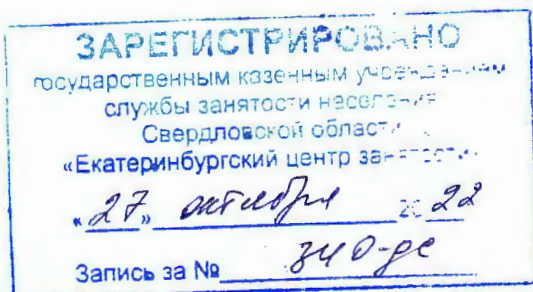 ЗАРЕГИСТРИРОВАНО
государственным казенным учреждением
службы занятости населения
Свердловской области
«Екатеринбургский центр занятости»
«27» октября 2022
Запись за № 340-дс